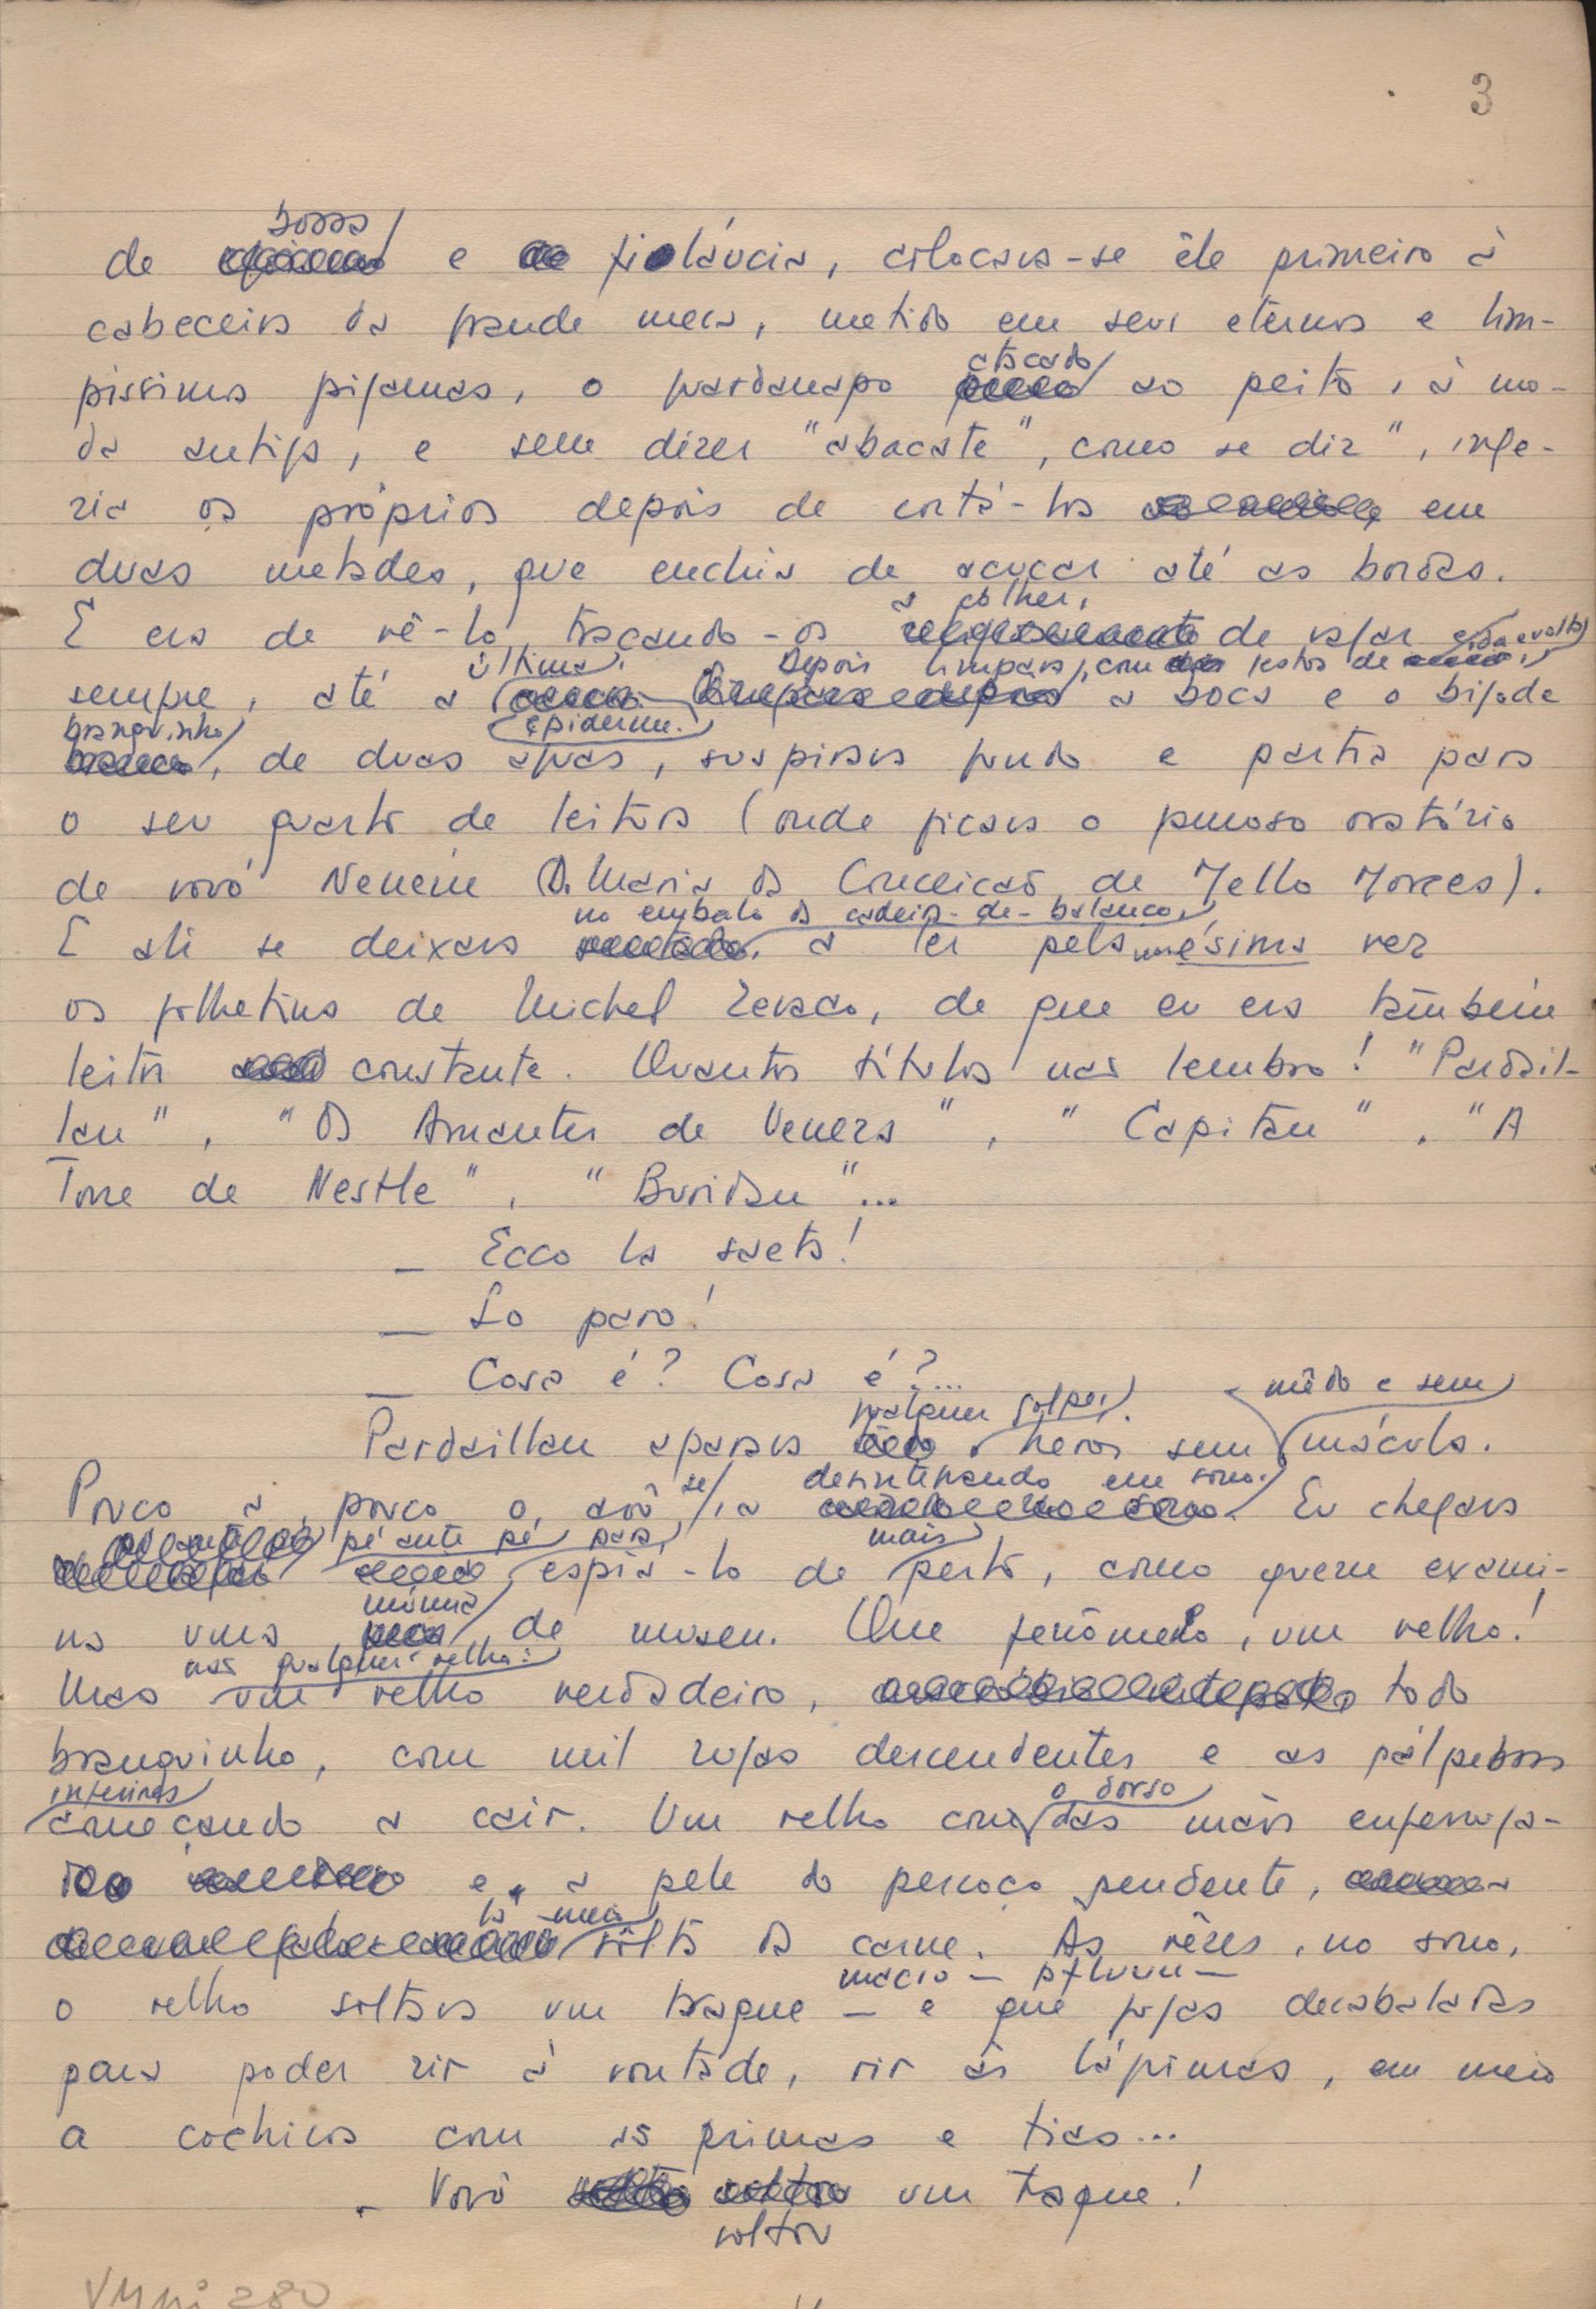 3
bossa
de e fioláucia, colocava-se êle primeiro à
cabeceira da grande mesa, metido em seus eternos e lim-
atacado
píssimos pijamas, o guardanapo ao peito, à mo-
da antiga, e sem dizer "abacate", como se diz", inge-
ria os próprios depois de cortá-los em
duas metades, que enchia de açucar até as bordas.
a colher,
E era de vê-lo traçando-os de vagar e
última. Depois limpava, com restos de
sempre, até a a boca e o bigode
epiderme.
branquinho
, de duas águas, suspirava fundo e partia para
o seu quarto de leitura (onde ficava o famoso oratório
de vovó Neném D. Maria da Conceição de Mello Moraes).
no embalo da cadeira-de-balanço,
E ali se deixava a ler pela umésima vez
os folhetins de Michel Zevaco, de que eu era também
leitor constante. Quantos títulos não lembro! "Pardail-
lan", "Os Amantes de Veneza", "Capitan", "A
Torre de Nestle", "Buridan"...
— Ecco la saeta!
— Lo paro!
— Cosa é? Cosa é?...
qualquer golpe, mêdo e sem
Pardaillan aparava herói sem mácula.
se desintegrando em sono.
Pouco a pouco o avô ia Eu chegava
pé ante pé para mais
espiá-lo de perto, como quem exami-
múmia
na uma de museu. Que fenômeno, um velho!
não qualquer velho:
Mas um velho verdadeiro, todo
branquinho, com mil rugas descendentes e as pálpebras
inferiores o dorso
começando a cair. Um velho com das mãos enferruja-
do e a pele do pescoço pendente,
meio
solta da carne. Às vêzes, no sono,
macio — pfluuu —
o velho soltava um traque — e que fugas desabaladas
para poder rir à vontade, rir às lágrimas, em meio
a cochichos com as primas e tias...
— Vovô um traque!
soltou
VMpi 280